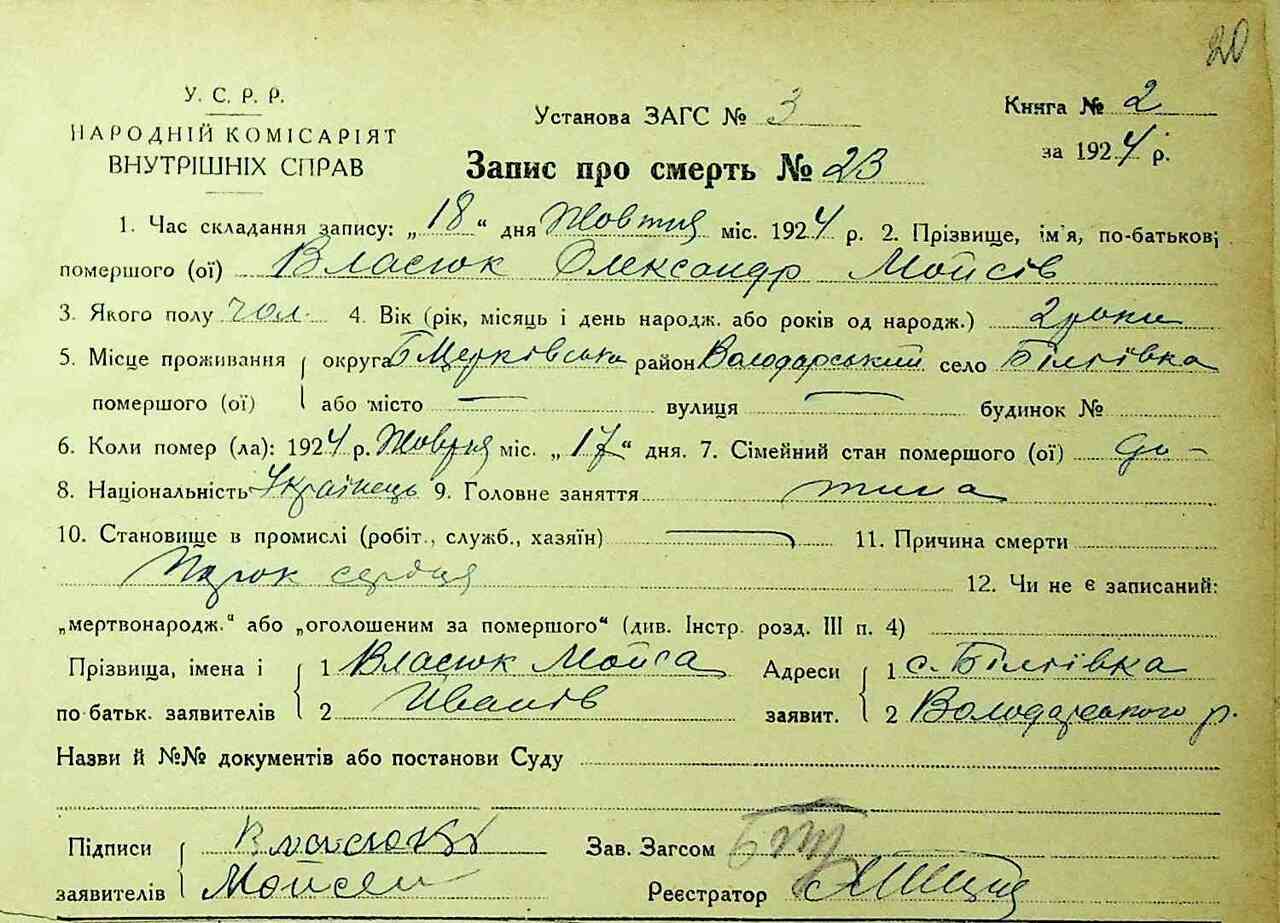 20
У. С. Р. Р.
НАРОДНІЙ КОМІСАРІЯТ
ВНУТРІШНІХ СПРАВ
Установа ЗАГС № 3
Книга № 2
за 1924 р.
Запис про смерть № 23
1. Час складання запису: „18“ дня Жовтня міс. 1924 р. 2. Прізвище, ім'я, по-батькові
помершого (ої) Власюк Олександр Мойсів
3. Якого полу чол. 4. Вік (рік, місяць і день народж. або років од народж.) 2 роки
5. Місце проживання округа Б Церківська район Володарський село Біліївка
помершого (ої) або місто — вулиця — будинок №
6. Коли помер (ла): 1924 р. Жовтня міс. „17“ дня. 7. Сімейний стан помершого (ої) ди-
8. Національність Українець 9. Головне заняття тина
10. Становище в промислі (робіт., служб., хазяїн) — 11. Причина смерти
Порок сердця 12. Чи не є записаний:
„мертвонародж.“ або „оголошеним за помершого“ (див. Інстр. розд. III п. 4)
Прізвища, імена і 1 Власюк Мойса Адреси 1 с. Біліївка
по батьк. заявителів 2 Иванів заявит. 2 Володарського р.
Назви й №№ документів або постанови Суду
Підписи Зав. Загсом
заявителів Мойсей Реєстратор